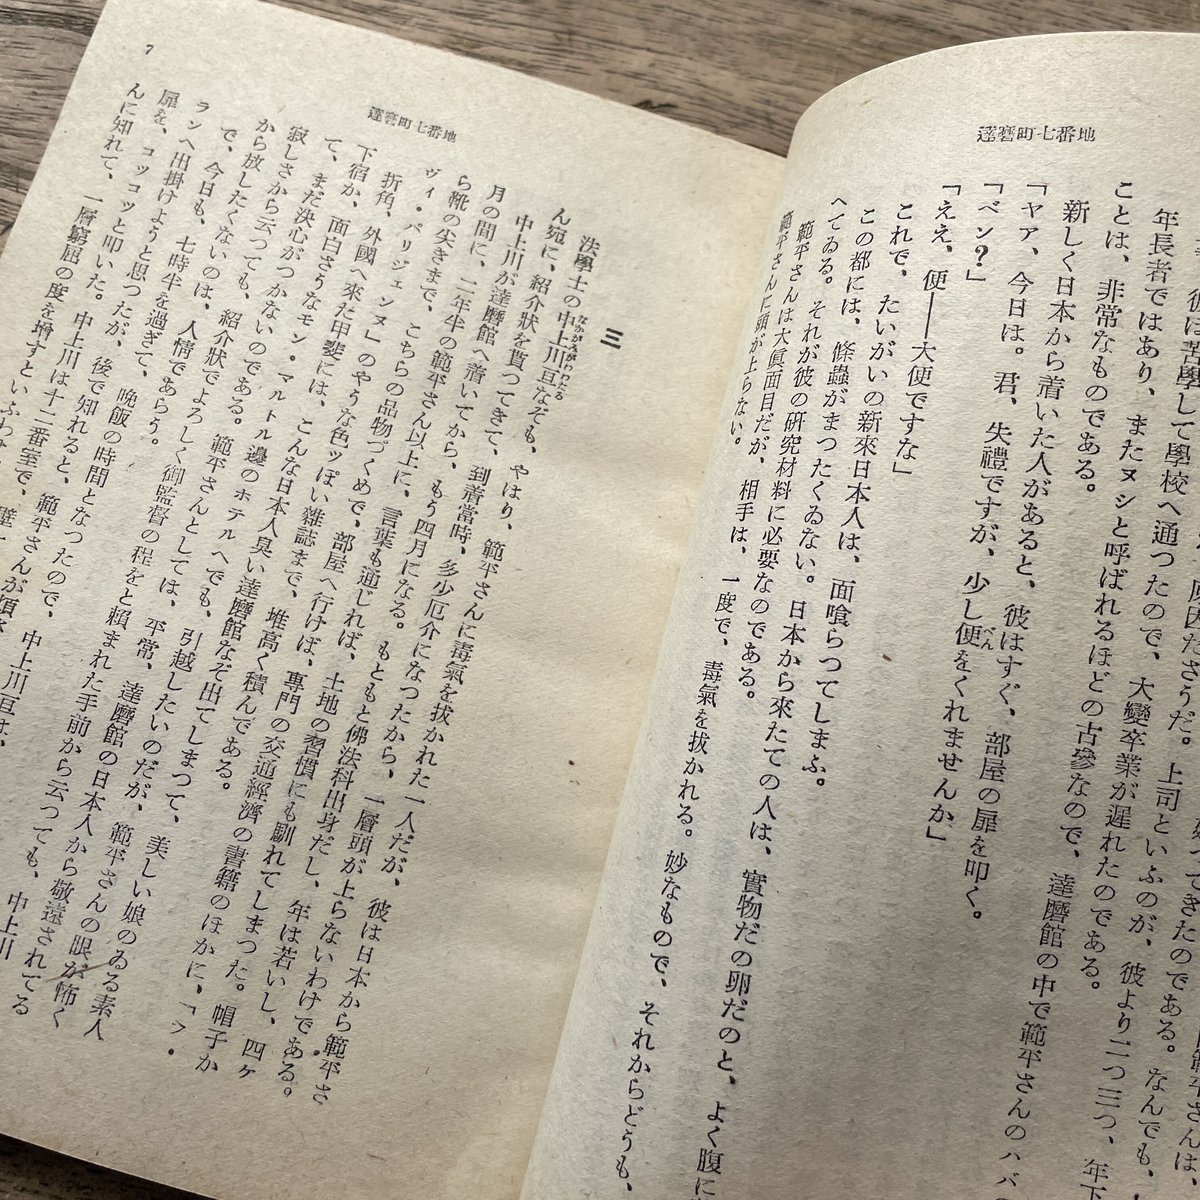 達磨町七番地
彼は苦學して學校へ通つたので、大變卒業が遲れたのである。
年長者ではあり、またヌシと呼ばれるほどの古參なので、達磨館の中で範平さんのハバの
ことは、非常なものである。
新しく日本から着いた人があると、彼はすぐ、部屋の扉を叩く。
「ヤア、今日は。君、失禮ですが、少し便をくれませんか」
べん
「ベン？」
「ええ、便――大便ですな」
これで、たいがいの新來日本人は、面喰らつてしまふ。
この都には、條蟲がまつたくゐない。日本から來たての人は、實物だの卵だのと、よく腹に
へてゐる。それが彼の研究材料に必要なのである。
範平さんは大眞面目だが、相手は、一度で、毒氣を拔かれる。妙なもので、それからどうも、
範平さんに頭が上らない。
7
達磨町七番地
三
法學士の中上川亘なぞも、やはり、範平さんに毒氣を拔かれた一人だが、彼は日本から範平さ
なかがみがわわたる
ん宛に、紹介狀を貰つてきて、到着當時、多少厄介になつたから、一層頭が上らないわけである。
中上川が達磨館へ着いてから、もう四月になる。もともと佛法科出身だし、年は若いし、四ヶ
月の間に、二年半の範平さん以上に、言葉も通じれば、土地の習慣にも馴れてしまつた。帽子か
ら靴の尖きまで、こちらの品物づくめで、部屋へ行けば、專門の交通經濟の書籍のほかに、「ラ・
ヴィ・パリジェンヌ」のやうな色ッぽい雜誌まで、堆高く積んである。
折角、外國へ來た甲斐には、こんな日本人臭い達磨館なぞ出てしまつて、美しい娘のゐる素人
下宿か、面白さうなモン・マルトル邊のホテルへでも、引越したいのだが、範平さんの眼が怖く
て、まだ決心がつかないのである。範平さんとしては、平常、達磨館の日本人から敬遠されてる
寂しさから云つても、紹介狀でよろしく御監督の程をと賴まれた手前から云つても、中上川
から放したくないのは、人情であらう。
で、今日も、七時半を過ぎて、晩飯の時間となつたので、中上川亘は、
ランへ出掛けようと思つたが、後で知れると、範平さんが
扉を、コツコツと叩いた。中上川は十二番室で、壁一
んに知れて、一層窮屈の度を增すといふわ